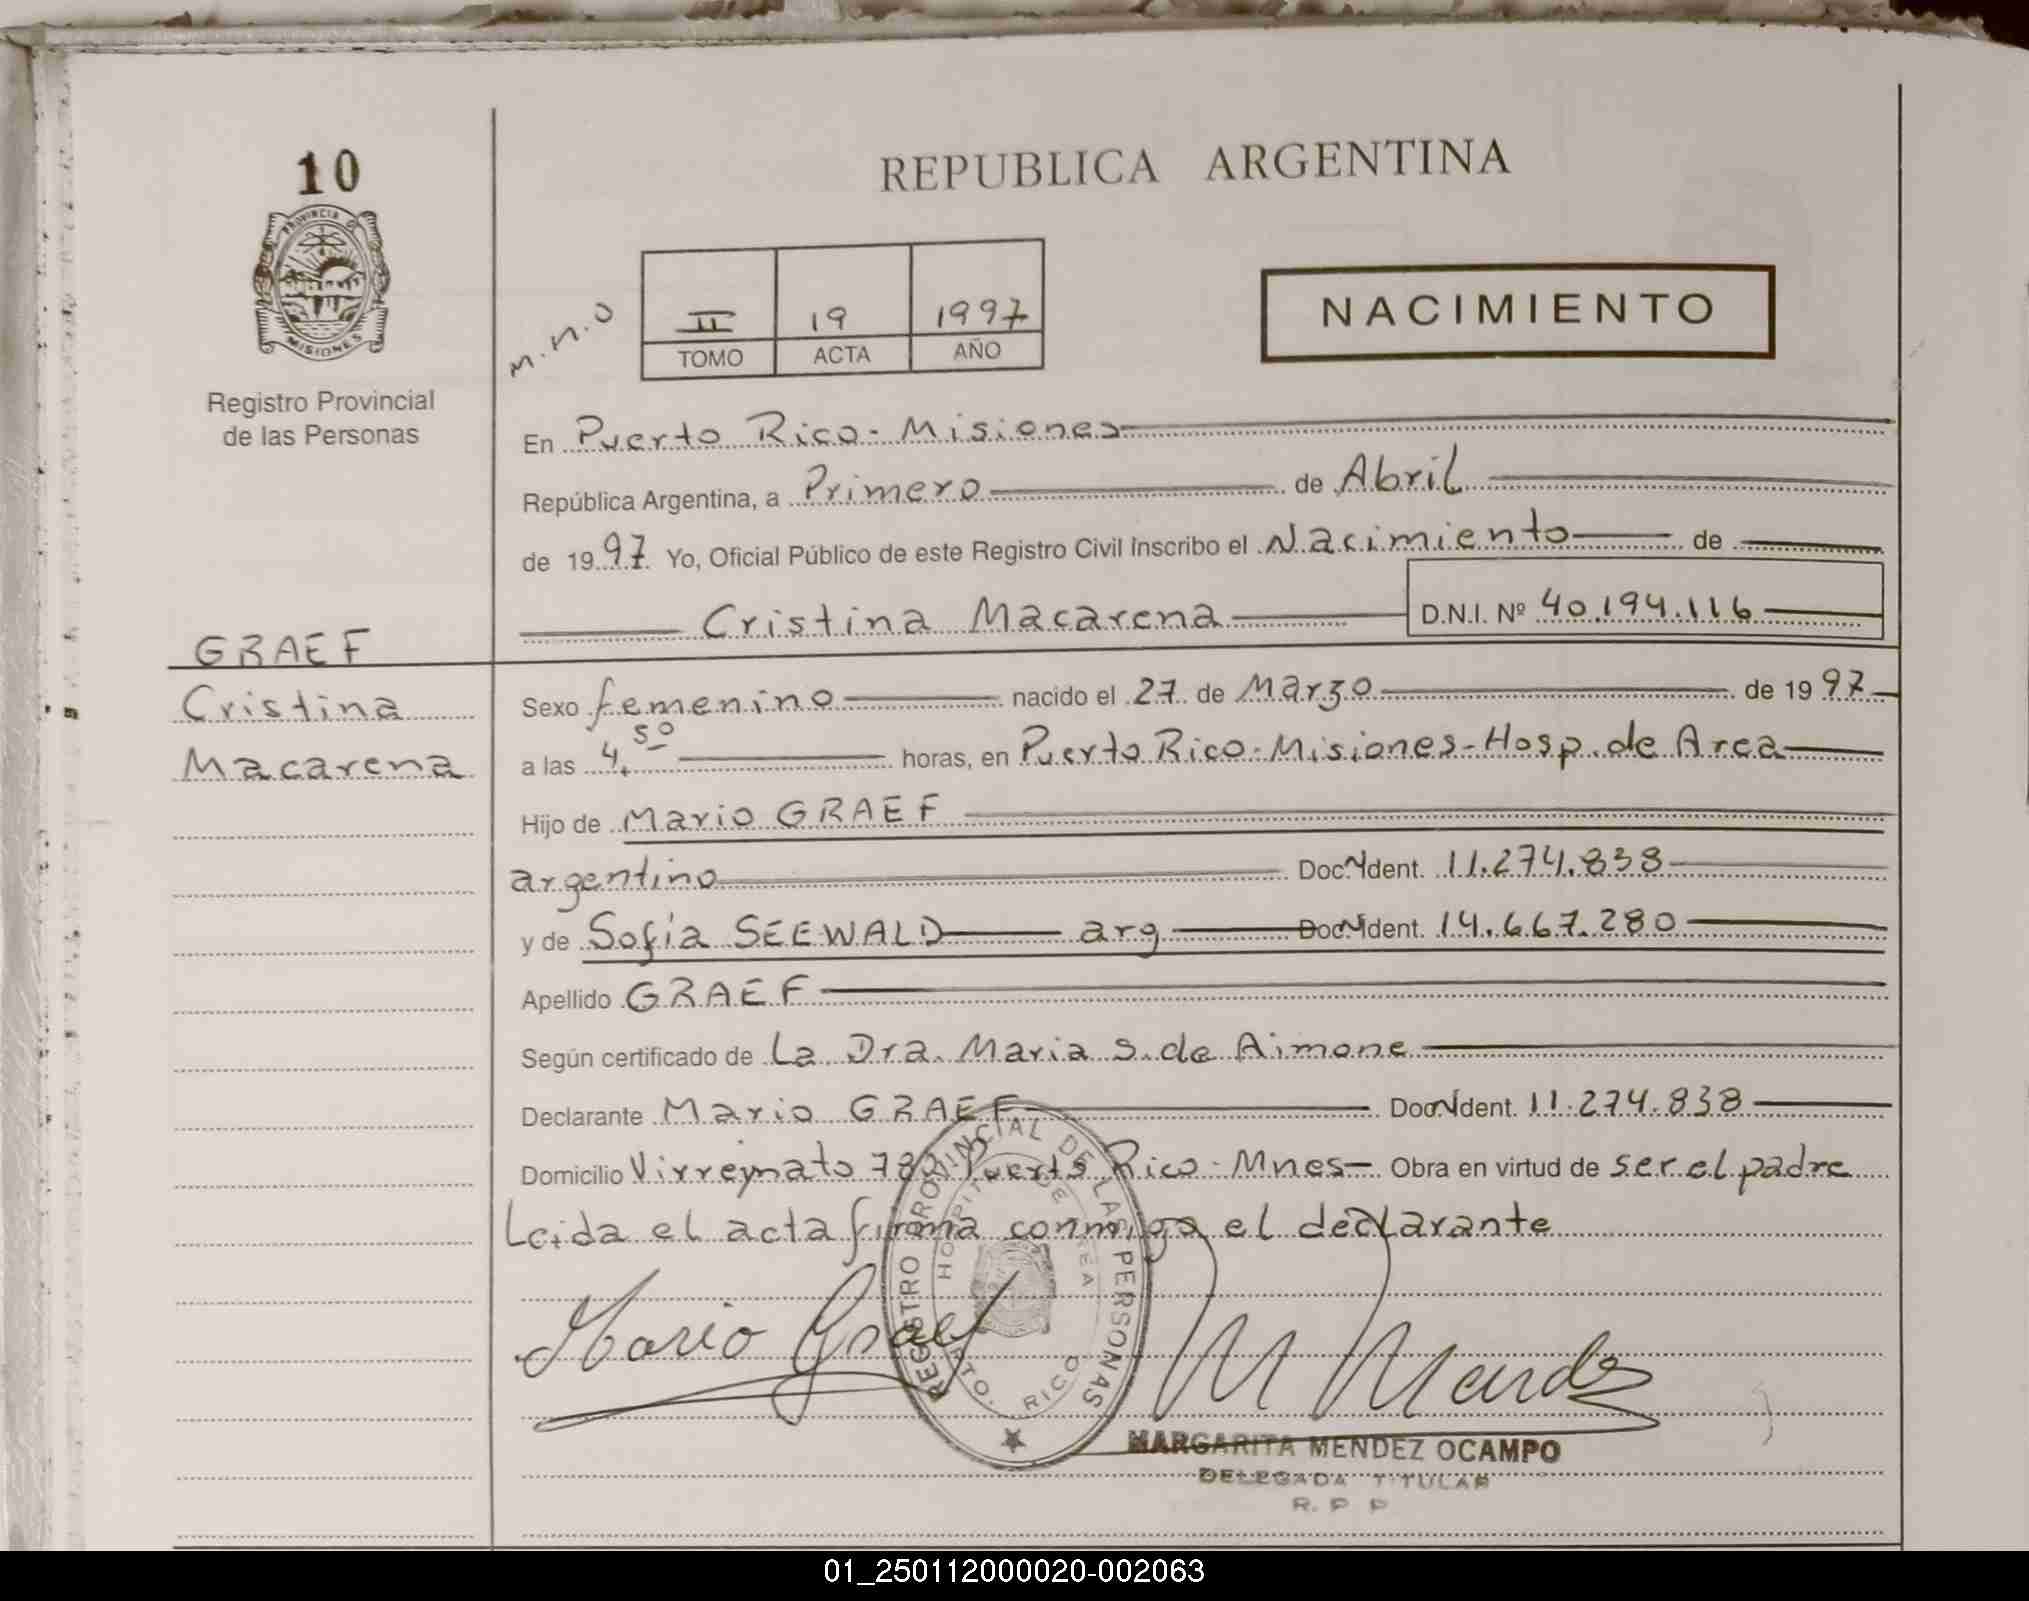 10
PROVINCIA DE
MISIONES
Registro Provincial
de las Personas
REPUBLICA ARGENTINA
m.n.o
II 19 1997
TOMO ACTA AÑO
NACIMIENTO
En Puerto Rico - Misiones
República Argentina, a Primero de Abril
de 1997 Yo, Oficial Público de este Registro Civil Inscribo el Nacimiento de
Cristina Macarena D.N.I. Nº 40.194.116
GRAEF
Cristina
Macarena
Sexo femenino nacido el 27 de Marzo de 1997
a las 4,50 horas, en Puerto Rico - Misiones - Hosp. de Area
Hijo de Mario GRAEF
argentino Doc. Ident. 11.274.838
y de Sofia SEEWALD arg Doc. Ident. 14.667.280
Apellido GRAEF
Según certificado de La Dra. Maria S. de Aimone
Declarante Mario GRAEF Doc. Ident. 11.274.838
Domicilio Virreynato Puerto Rico - Mnes - Obra en virtud de ser el padre
Leida el acta firma conmigo el declarante
Mario Graef
M Mendez
REGISTRO PROVINCIAL DE LAS PERSONAS
HOSPITAL DE AREA
PTO. RICO
MARGARITA MENDEZ OCAMPO
DELEGADA TITULAR
R. P P
01_250112000020-002063